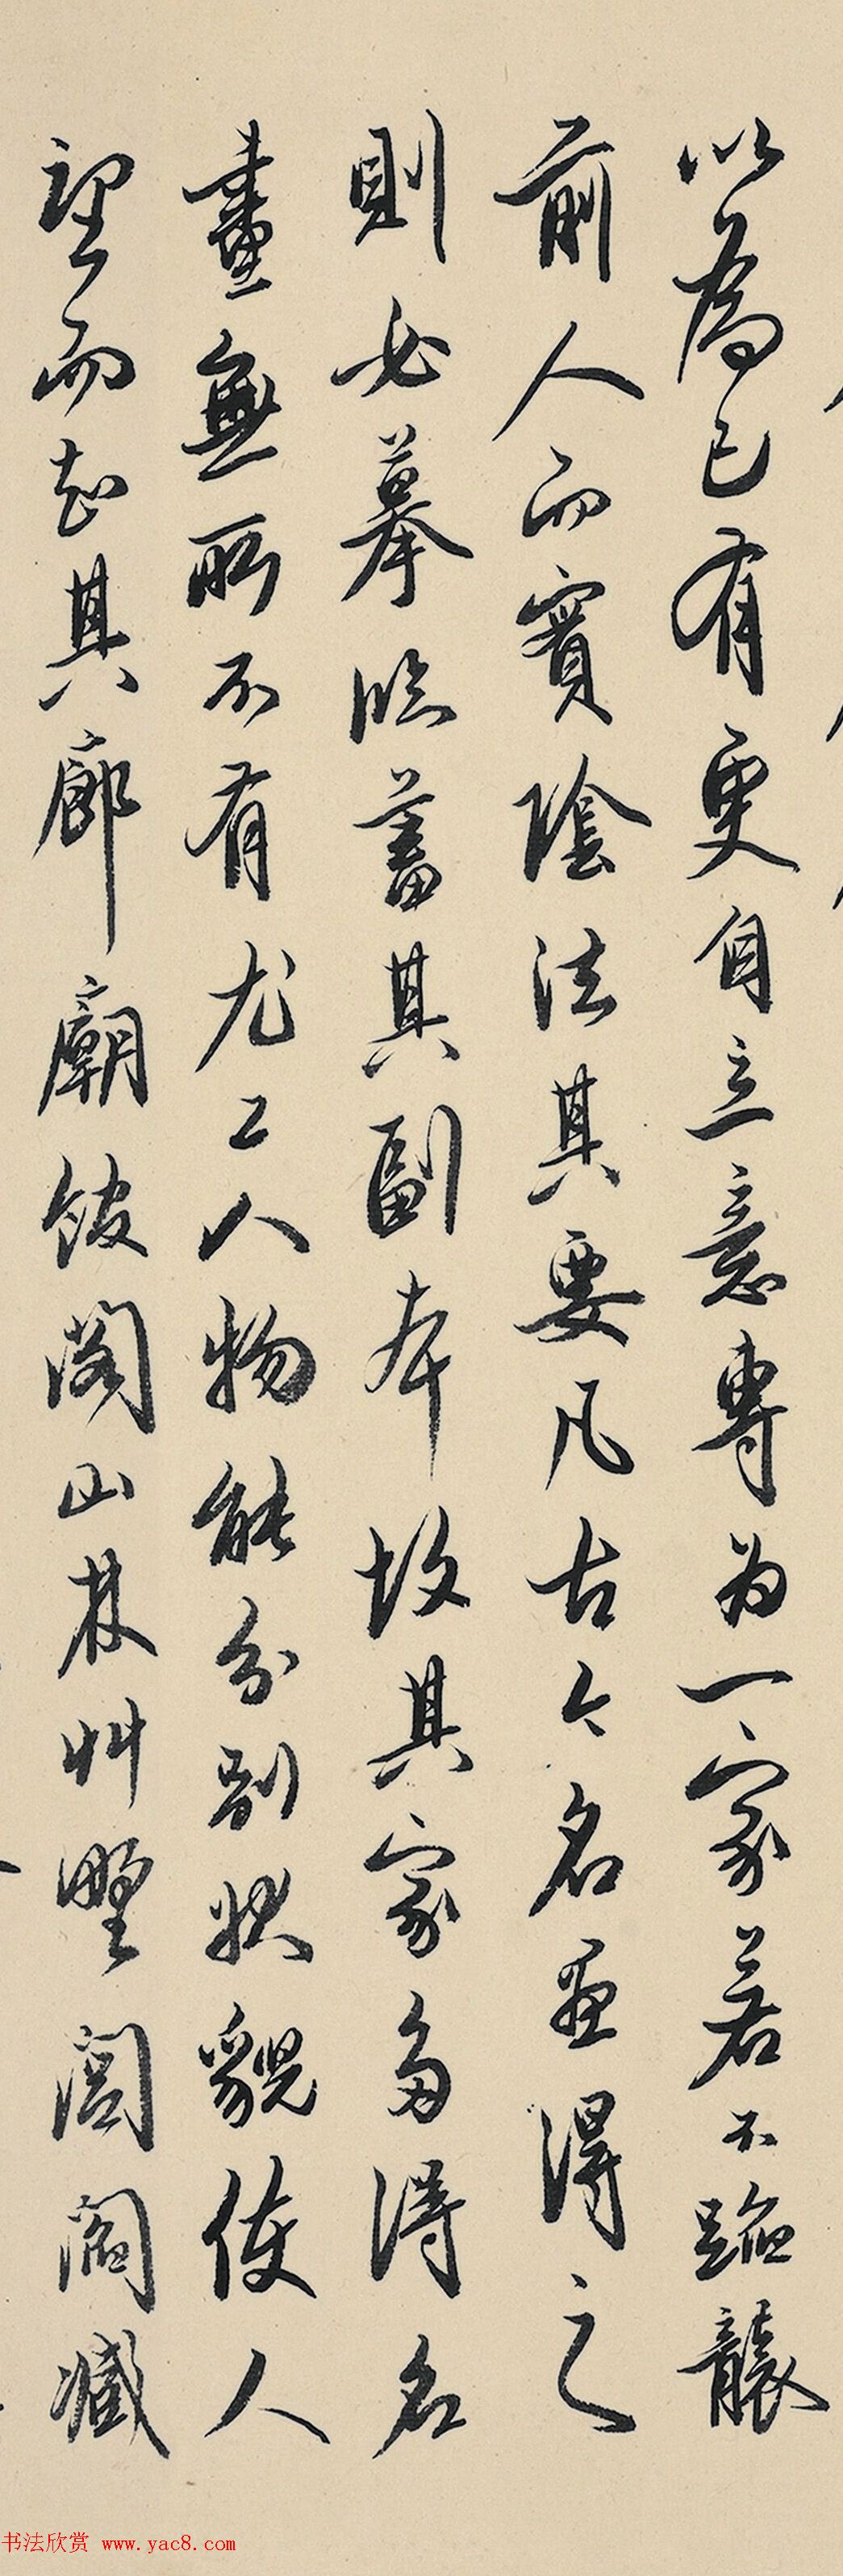 以為己有更自立意專为一家若不蹈襲
前人而實陰法其要凡古今名畫得之
則必摹臨蓄其副本故其家多得名
畫無所不有尤工人物能分别狀貌使人
望而知其廊廟館閣山林艸野閭閻臧
书法欣赏 www.yac8.com